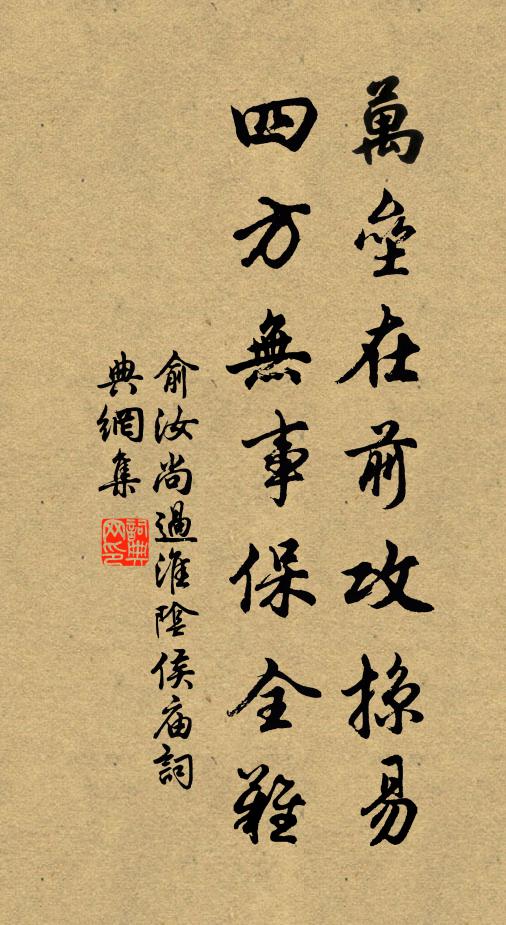 萬壘在前攻掠易
四方無事保全難
俞汝尚過淮陰侯庙詞
典網集
詞典網印